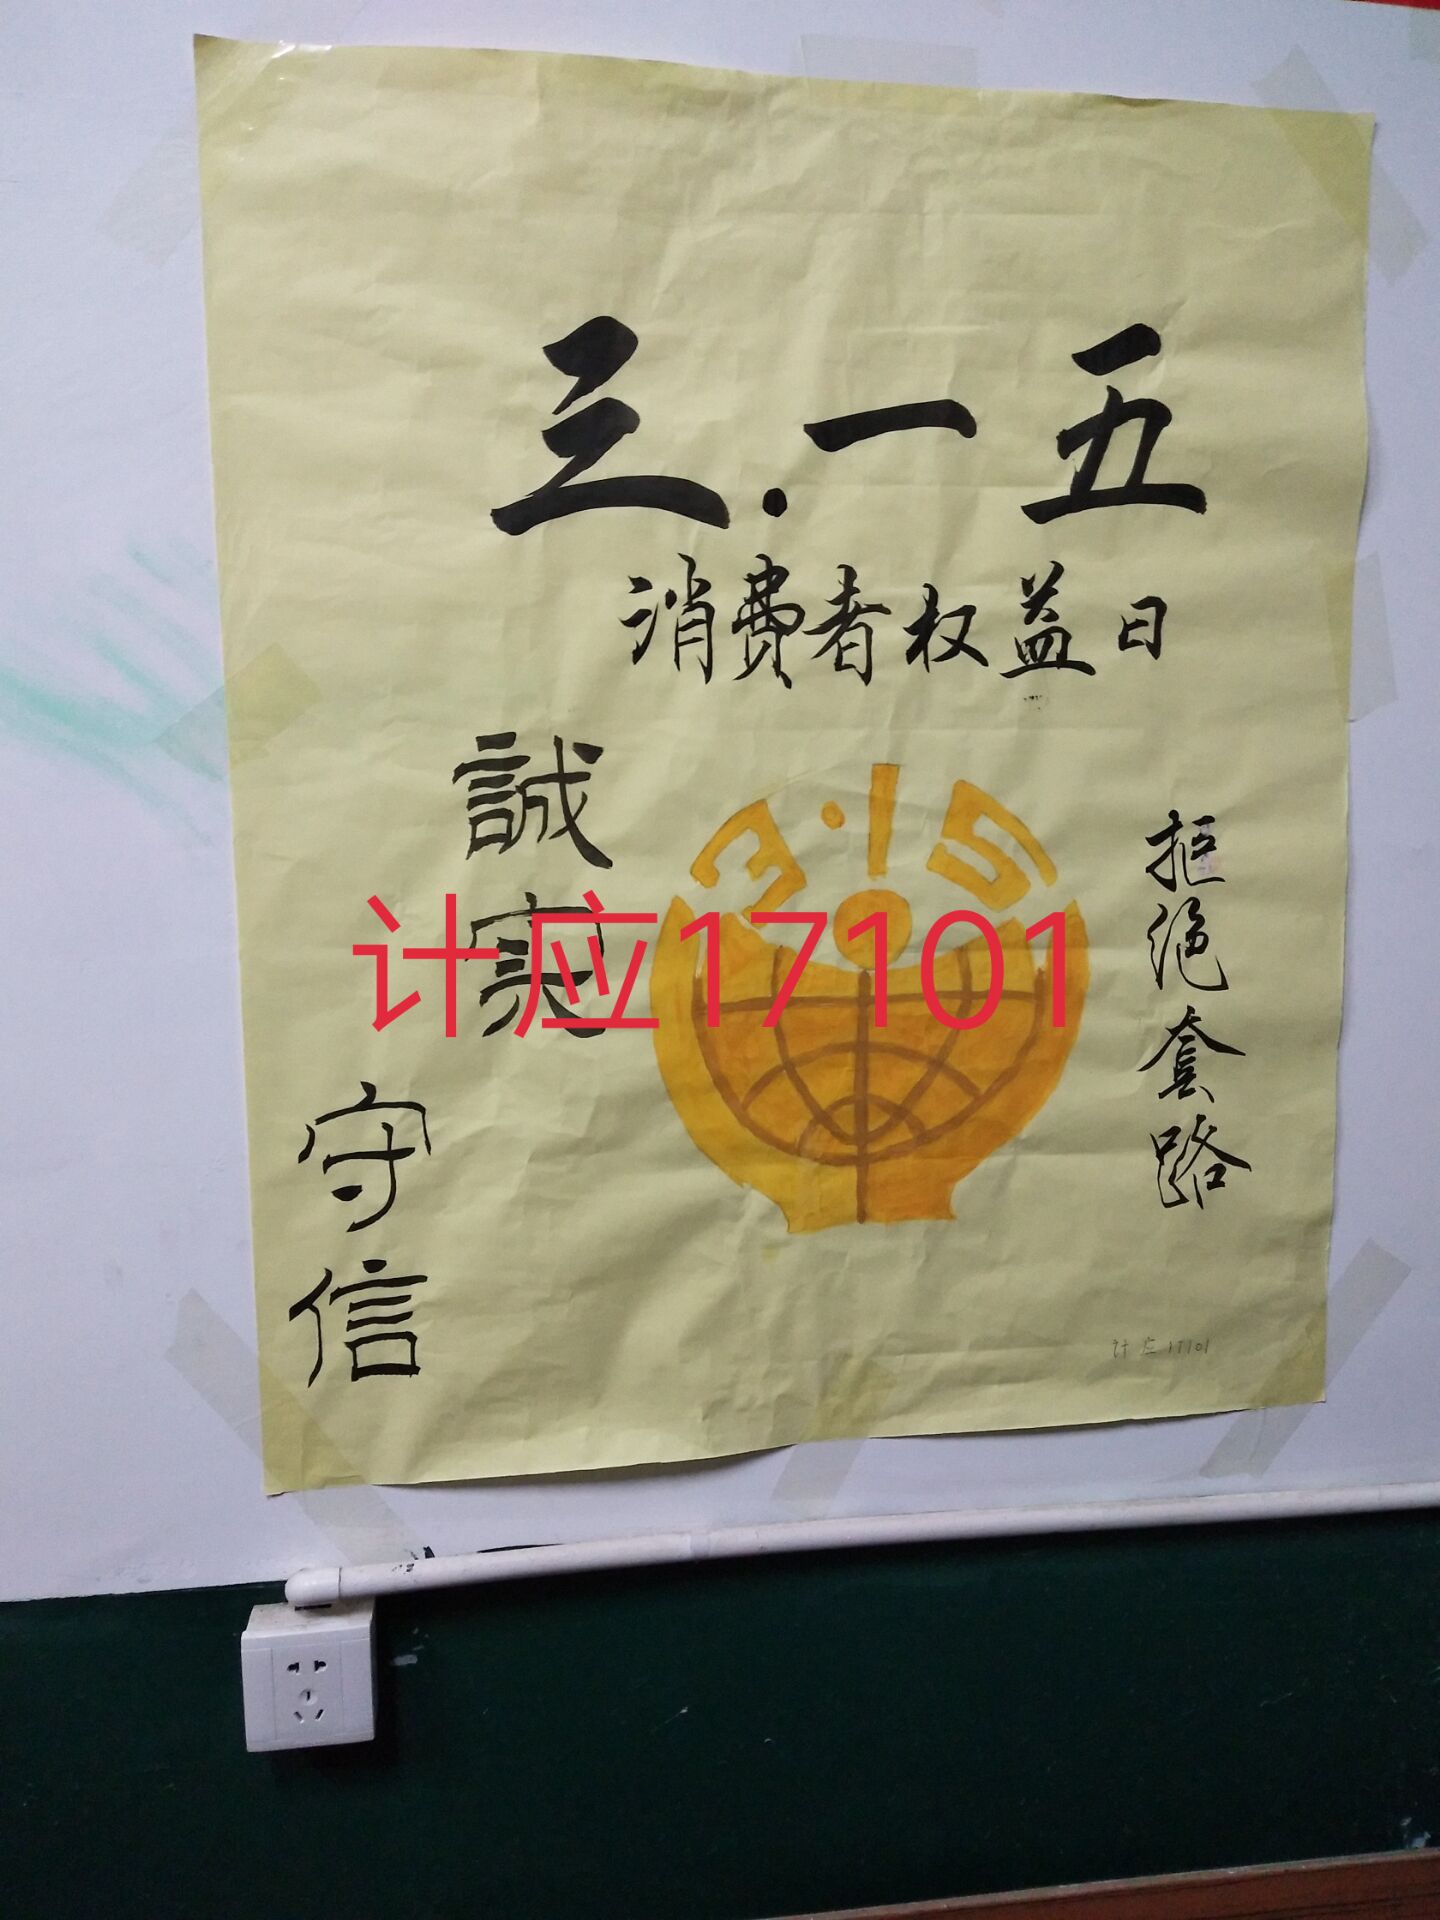 三.一五
消费者权益日
3·15
誠实
守信
拒绝套路
计应17101
计应17101